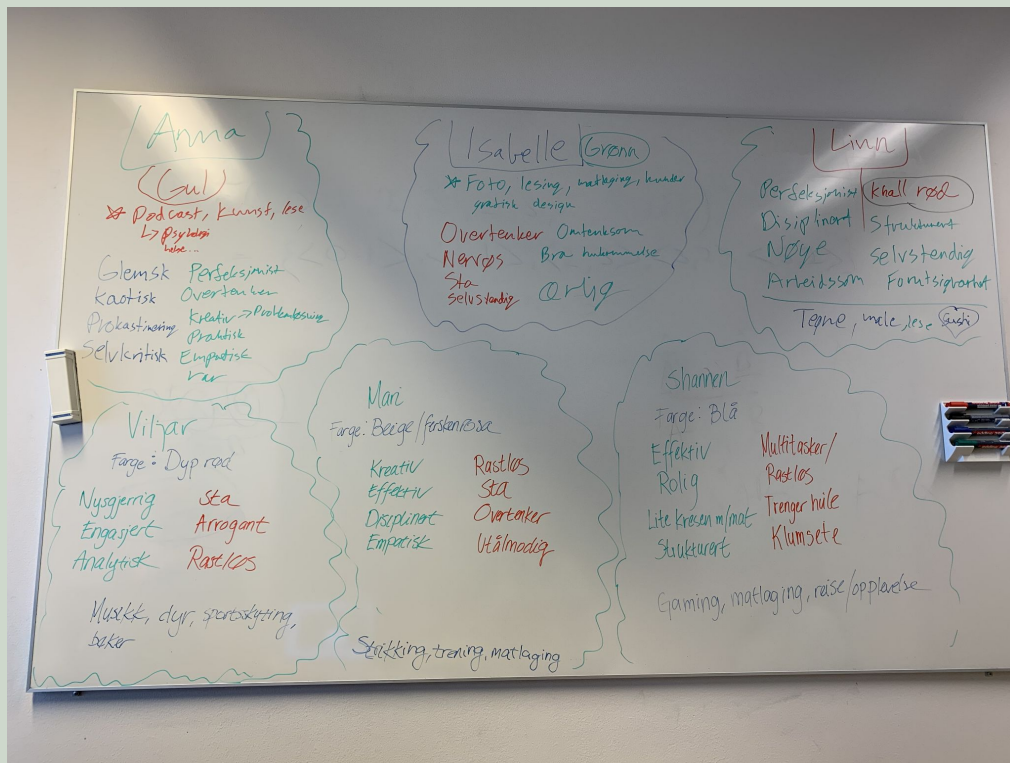 Anna
Gul
Podcast, kunst, lese
↳ psykologi
helse...
Glemsk
Kaotisk
Prokastinering
Selvkritisk
Perfeksjonist
Overtenker
Kreativ → Problemløsning
Praktisk
Empatisk
Var
Isabelle Grønn
Foto, lesing, matlaging, hunder
grafisk design
Overtenker
Nervøs
Sta
Selvstendig
Omtenksom
Bra hukommelse
Ærlig
Linn
Perfeksjonist
Disiplinert
Nøye
Arbeidssom
Knall rød
Strukturert
Selvstendig
Tegne, male, lese Sushi
Viljar
Farge: Dyp rød
Nysgjerrig
Engasjert
Analytisk
Sta
Arrogant
Rastløs
Musikk, dyr, sportsskyting,
bøker
Mari
Farge: Beige/ferskenrosa
Kreativ
Effektiv
Disciplinert
Empatisk
Rastløs
Sta
Overtenker
Utålmodig
Strikking, trening, matlaging
Shannen
Farge: Blå
Effektiv
Rolig
Lite kresen m/mat
Strukturert
Multitasker/
Rastløs
Trenger hvile
Klumsete
Gaming, matlaging, reise/opplevelse